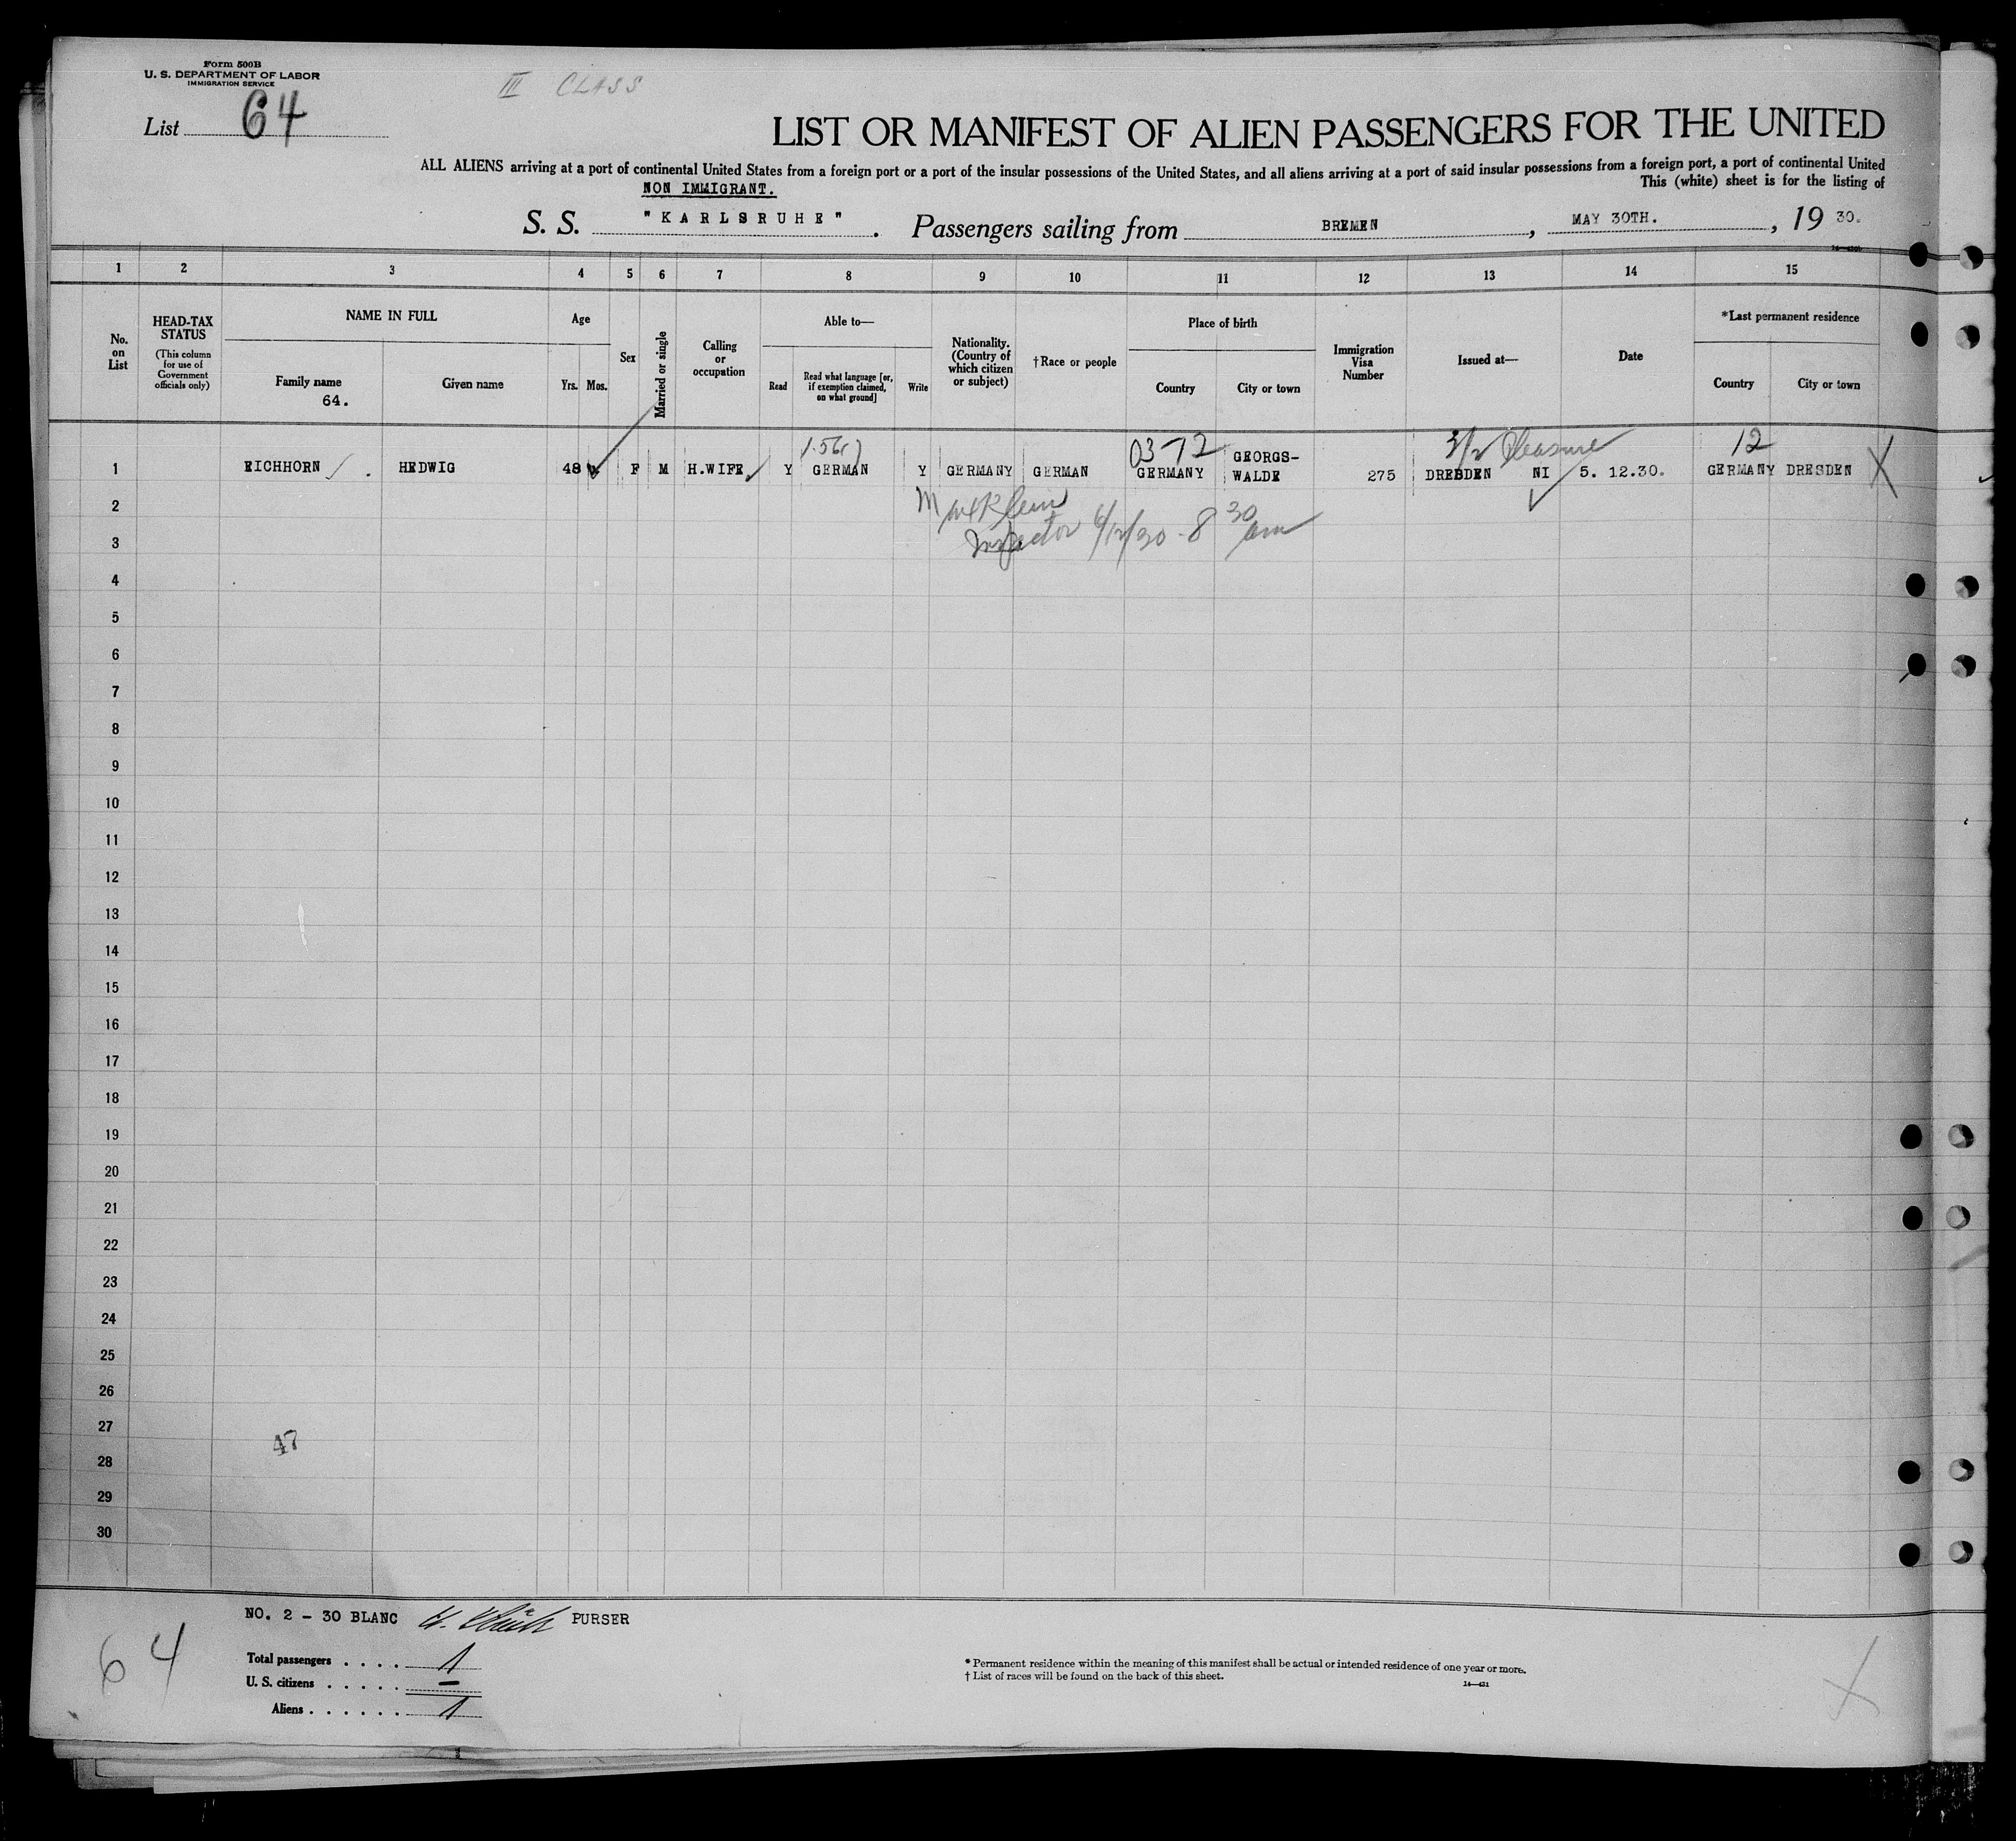 Form 500B
U. S. DEPARTMENT OF LABOR
IMMIGRATION SERVICE
III CLASS
List 64
LIST OR MANIFEST OF ALIEN PASSENGERS FOR THE UNITED
ALL ALIENS arriving at a port of continental United States from a foreign port or a port of the insular possessions of the United States, and all aliens arriving at a port of said insular possessions from a foreign port, a port of continental United
This (white) sheet is for the listing of
NON IMMIGRANT.
S. S. "KARLSRUHE". Passengers sailing from BREMEN, MAY 30TH., 19 30.
1 2 3 4 5 6 7 8 9 10 11 12 13 14 15
No. on List
HEAD-TAX STATUS
(This column for use of Government officials only)
NAME IN FULL
Family name
64.
Given name
Age
Yrs. Mos.
Sex
Married or single
Calling or occupation
Able to—
Read
Read what language [or, if exemption claimed, on what ground]
Write
Nationality. (Country of which citizen or subject)
†Race or people
Place of birth
Country
City or town
Immigration Visa Number
Issued at—
Date
*Last permanent residence
Country
City or town
03-72 Pleasure 12
1 EICHHORN HEDWIG 48 F M H.WIFE Y GERMAN Y GERMANY GERMAN GERMANY GEORGS-WALDE 275 DRESDEN NI 5. 12.30. GERMANY DRESDEN X
2
Inspector 6/12/30 - 8 30 am
3
4
5
6
7
8
9
10
11
12
13
14
15
16
17
18
19
20
21
22
23
24
25
26
27
47
28
29
30
NO. 2 - 30 BLANC PURSER
64
Total passengers . . . . 1
U. S. citizens . . . . . –
Aliens . . . . . . 1
* Permanent residence within the meaning of this manifest shall be actual or intended residence of one year or more.
† List of races will be found on the back of this sheet.
X